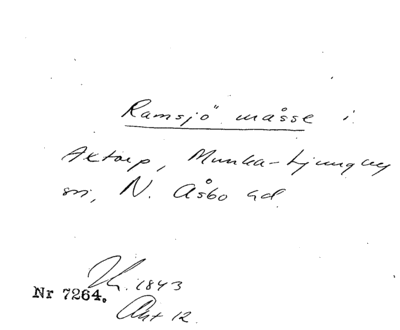 Ramsjö måsse i
Aktorp, Munka-Ljungby
sn, N. Åsbo hd.
1843
Nr 7264.
Akt 12.